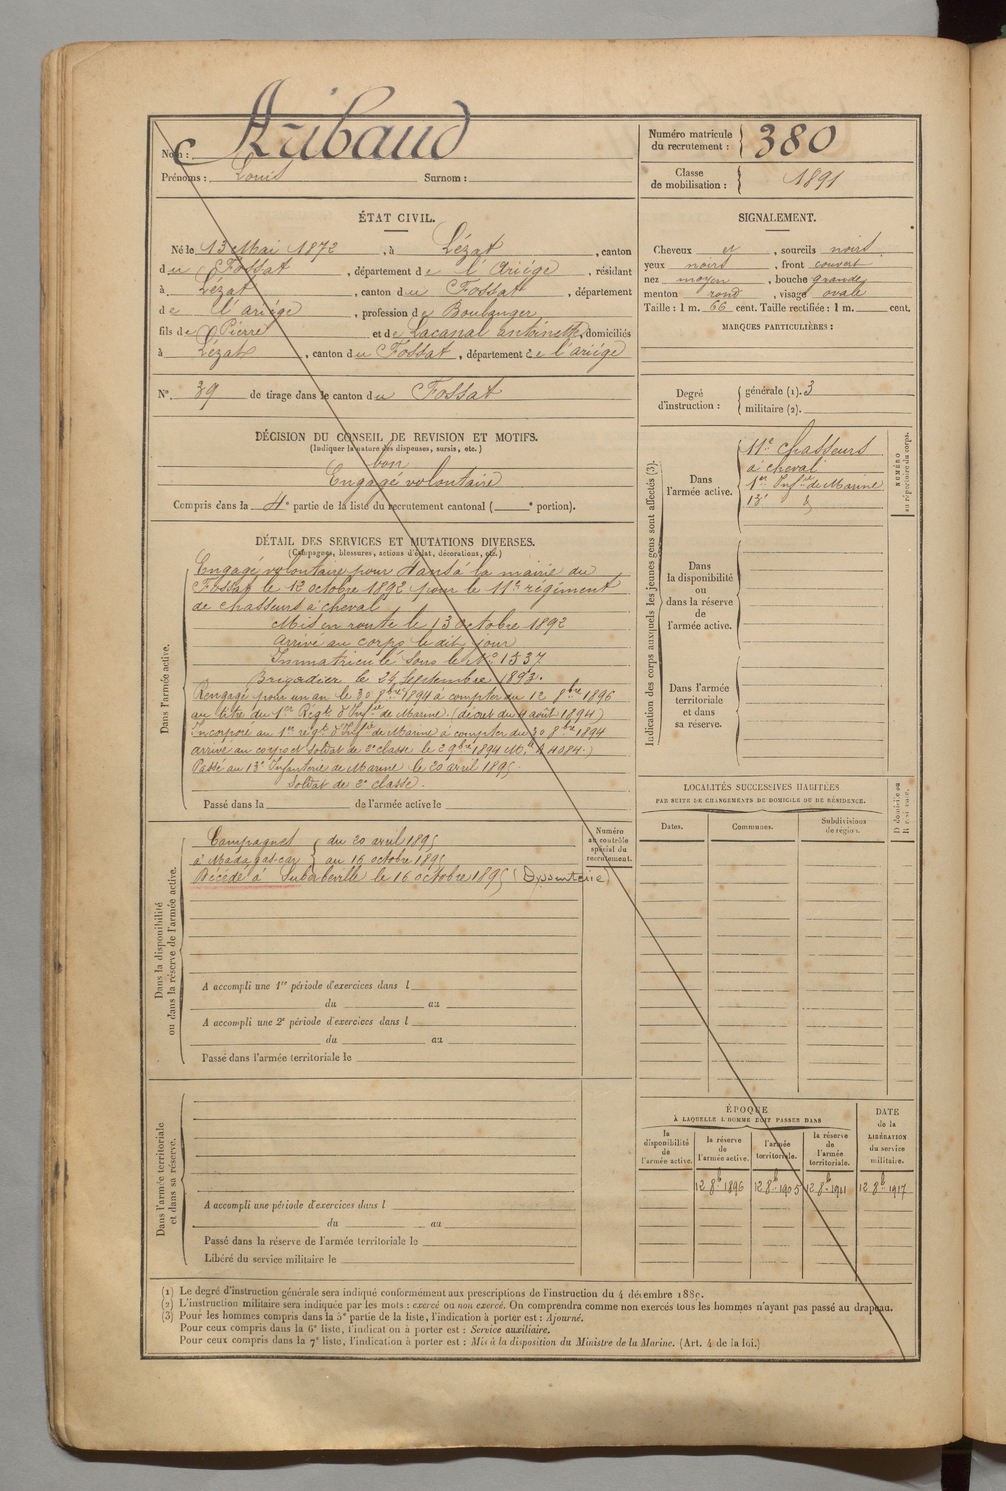 Nom : Aribaud
Prénoms : Louis Surnom :
Numéro matricule du recrutement : 380
Classe de mobilisation : 1891
ÉTAT CIVIL.
Né le 13 Mai 1872, à Lézat, canton
du Fossat, département de l'Ariége, résidant
à Lézat, canton du Fossat, département
de l'ariége, profession de Boulanger
fils de Pierre et de Lacanal antoinette, domiciliés
à Lézat, canton du Fossat, département de l'ariége
N° 39 de tirage dans le canton du Fossat
SIGNALEMENT.
Cheveux et, sourcils noirs
yeux noirs, front couvert
nez moyen, bouche grande
menton rond, visage ovale
Taille : 1 m. 66 cent. Taille rectifiée : 1 m. cent.
MARQUES PARTICULIÈRES :
Degré d'instruction : générale (1). 3
militaire (2).
DÉCISION DU CONSEIL DE REVISION ET MOTIFS.
(Indiquer la nature des dispenses, sursis, etc.)
bon
Engagé volontaire
Compris dans la 4e partie de la liste du recrutement cantonal ( e portion).
DÉTAIL DES SERVICES ET MUTATIONS DIVERSES.
(Campagnes, blessures, actions d'éclat, décorations, etc.)
Dans l'armée active.
Engagé volontaire pour 4 ans à la mairie du
Fossat le 12 octobre 1892 pour le 11e régiment
de chasseurs à cheval
Mis en route le 13 octobre 1892
Arrivé au corps le dit jour
Immatriculé sous le No 1537
Brigadier le 24 Septembre 1893.
Rengagé pour un an le 30 8bre 1894 à compter du 12 8bre 1896
au titre du 1er Régt d'Infie de Marine (décret du 4 août 1894)
Incorporé au 1er régt d'Infie de Marine à compter du 30 8bre 1894
arrivé au corps et soldat de 2e classe le 2 9bre 1894
Passé au 13e Infanterie de Marine le 20 avril 1895.
Soldat de 2e classe.
Passé dans la de l'armée active le
Indication des corps auxquels les jeunes gens sont affectés (3).
Dans l'armée active.
11e chasseurs
à cheval
1er Infie de Marine
13e
NUMÉRO au répertoire du corps.
Dans la disponibilité ou dans la réserve de l'armée active.
Dans l'armée territoriale et dans sa réserve.
LOCALITÉS SUCCESSIVES HABITÉES
PAR SUITE DE CHANGEMENTS DE DOMICILE OU DE RÉSIDENCE.
Dates. Communes. Subdivisions de région. D domicile ou R résidence.
Dans la disponibilité ou dans la réserve de l'armée active.
Numéro au contrôle spécial du recrutement.
Campagnes du 20 avril 1895
à Madagascar au 16 octobre 1895
Décédé à Suberbeville le 16 octobre 1895 (Dyssenterie)
A accompli une 1re période d'exercices dans l
du au
A accompli une 2e période d'exercices dans l
du au
Passé dans l'armée territoriale le
Dans l'armée territoriale et dans sa réserve.
A accompli une période d'exercices dans l
du au
Passé dans la réserve de l'armée territoriale le
Libéré du service militaire le
ÉPOQUE
À LAQUELLE L'HOMME DOIT PASSER DANS
la disponibilité de l'armée active.
la réserve de l'armée active.
l'armée territoriale.
la réserve de l'armée territoriale.
DATE de la LIBÉRATION du service militaire.
12 8b 1896 12 8b 1905 12 8b 1911 12 8b 1917
(1) Le degré d'instruction générale sera indiqué conformément aux prescriptions de l'instruction du 4 décembre 1889.
(2) L'instruction militaire sera indiquée par les mots : exercé ou non exercé. On comprendra comme non exercés tous les hommes n'ayant pas passé au drapeau.
(3) Pour les hommes compris dans la 5e partie de la liste, l'indication à porter est : Ajourné.
Pour ceux compris dans la 6e liste, l'indication à porter est : Service auxiliaire.
Pour ceux compris dans la 7e liste, l'indication à porter est : Mis à la disposition du Ministre de la Marine. (Art. 4 de la loi.)